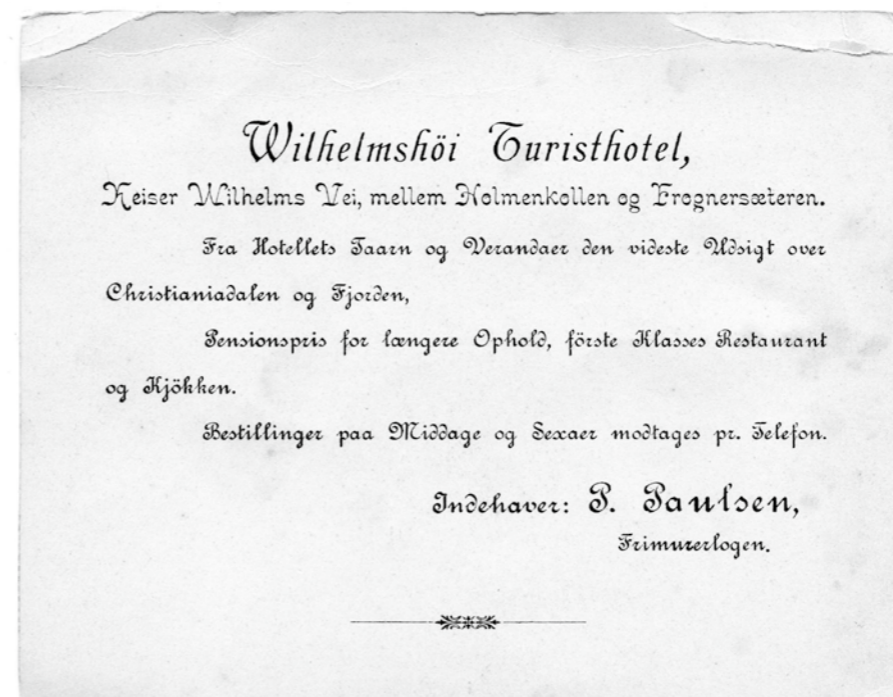 Wilhelmshöi Turisthotel,
Keiser Wilhelms Vei, mellem Holmenkollen og Frognersæteren.
Fra Hotellets Taarn og Verandaer den videste Udsigt over
Christianiadalen og Fjorden,
Pensionspris for længere Ophold, förste Klasses Restaurant
og Kjökken.
Bestillinger paa Middage og Sexaer modtages pr. Telefon.
Indehaver: P. Paulsen,
Frimurerlogen.